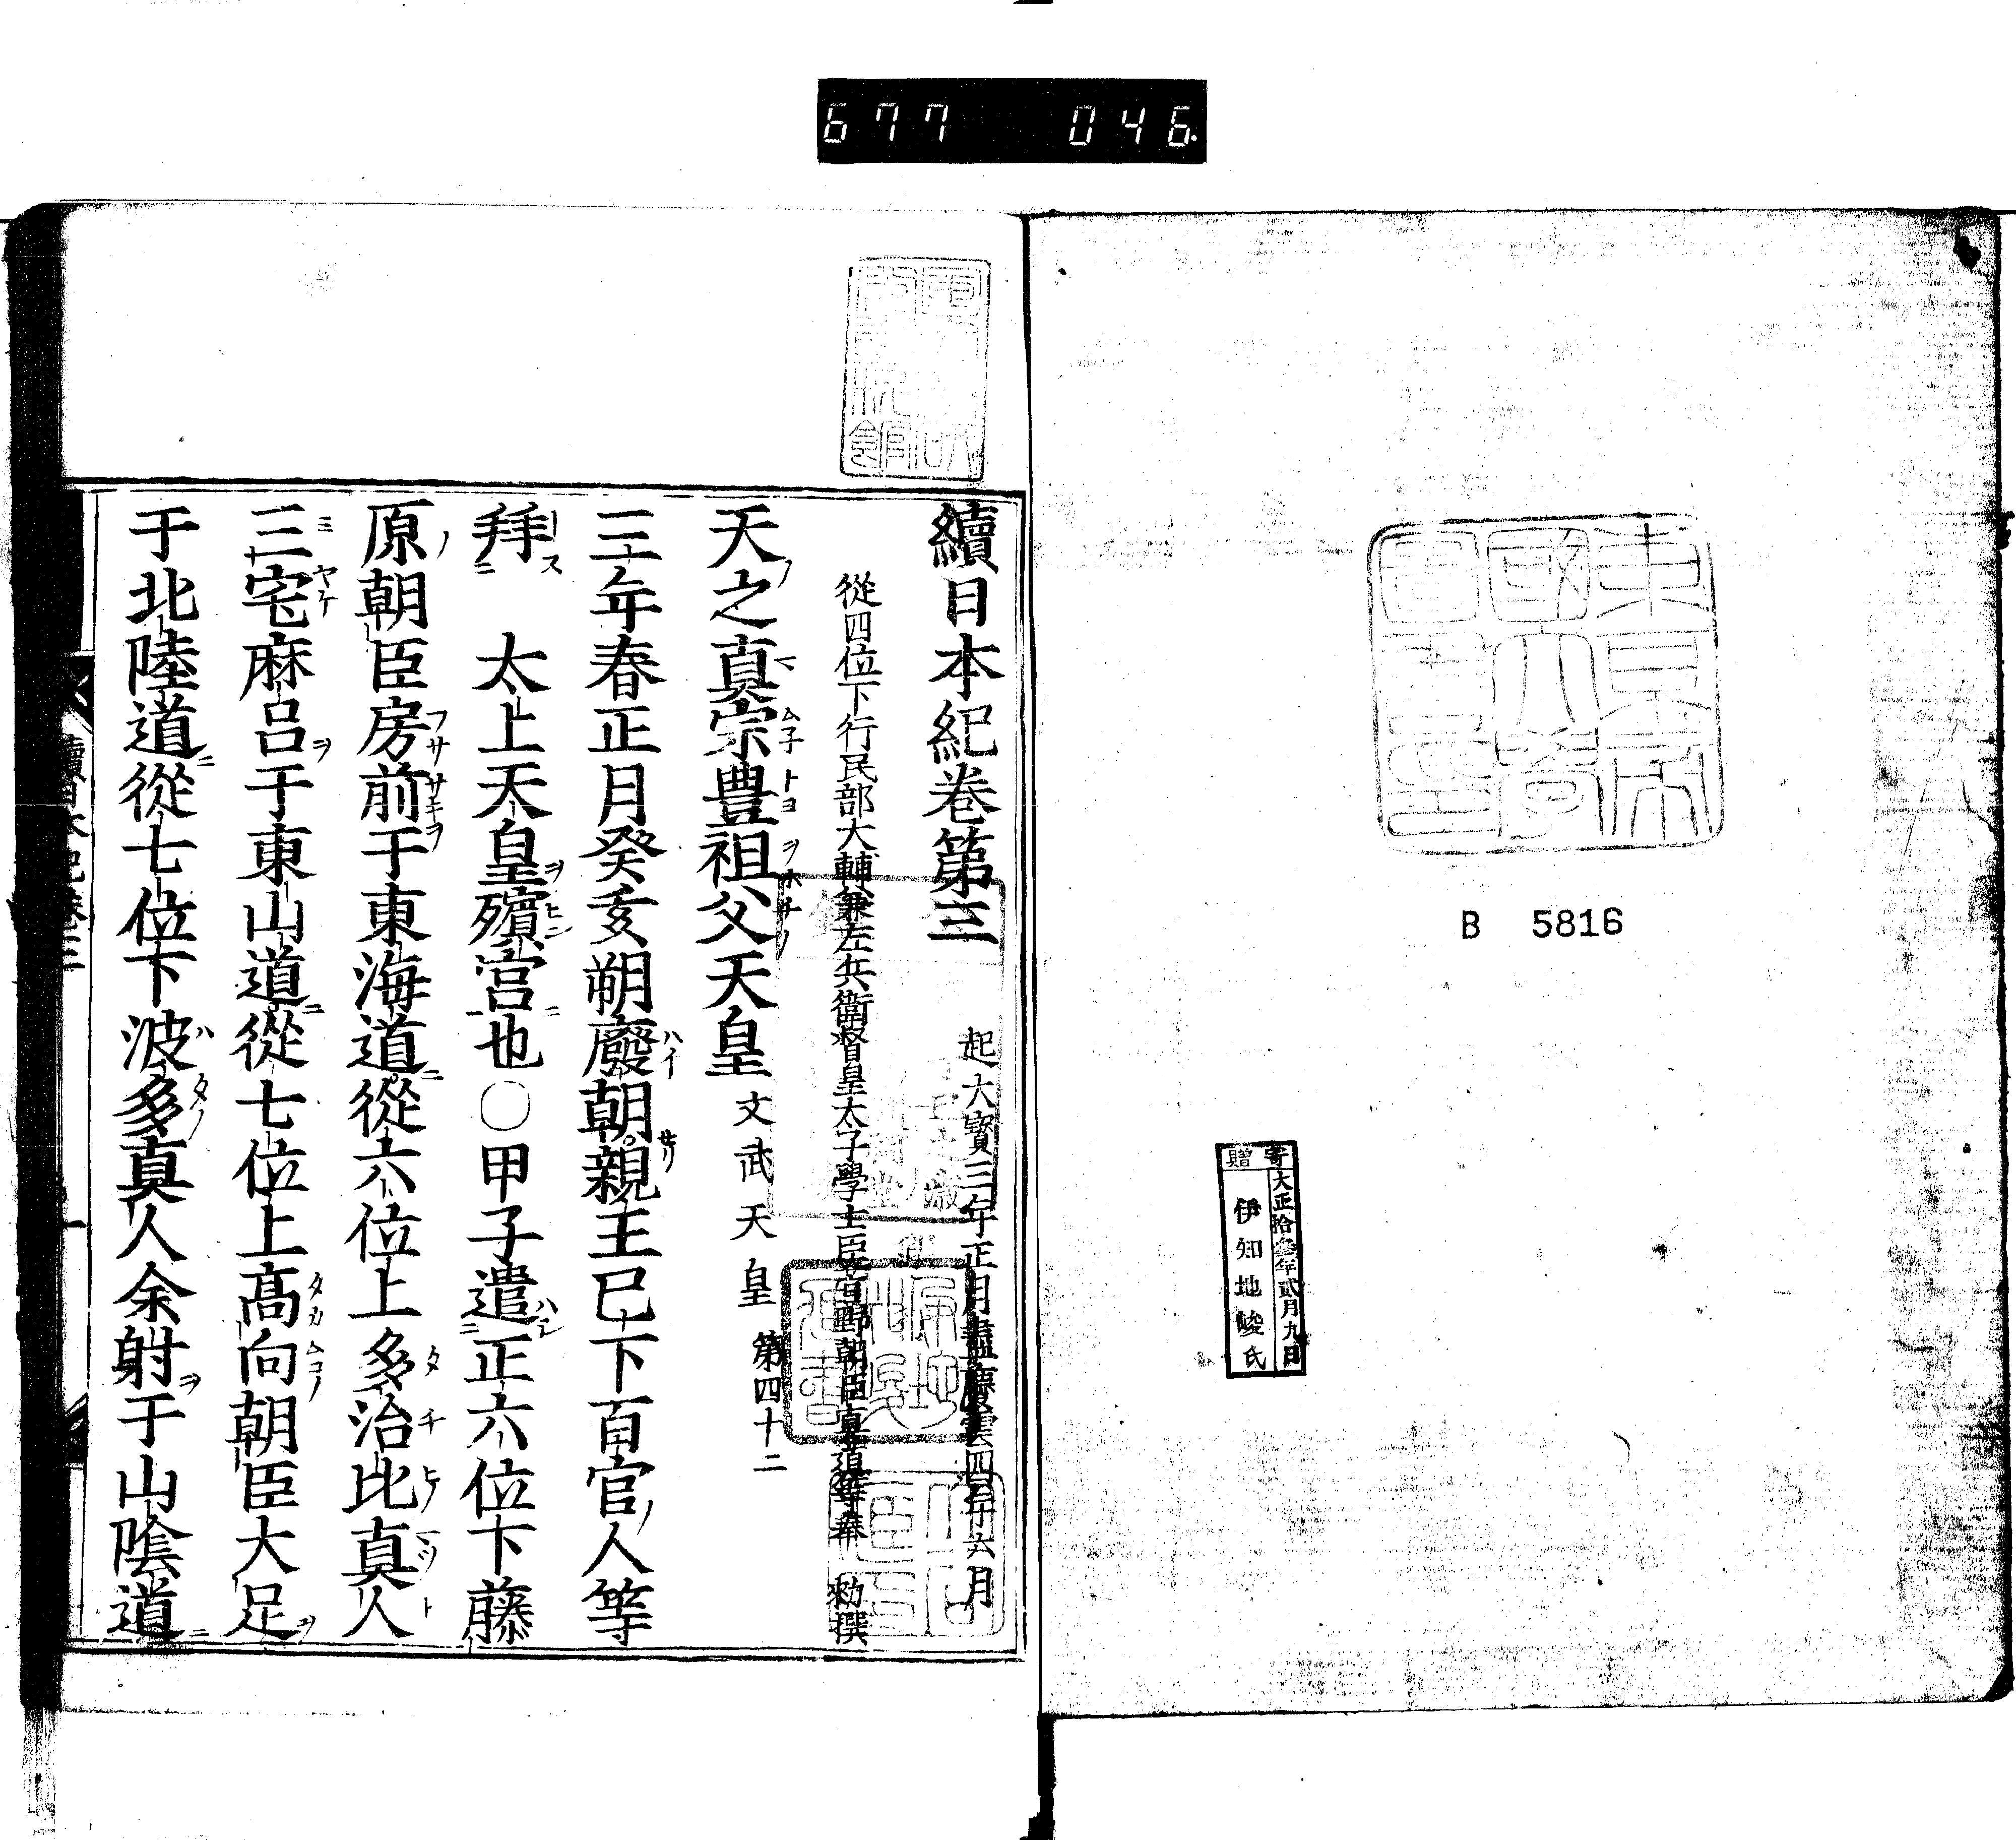 677 046.
東京帝國大學圖書印
B 5816
寄贈
大正拾參年貳月九日
伊知地峻氏
續日本紀卷第三 起大寶三年正月盡慶雲四年六月
從四位下行民部大輔兼左兵衛督皇太子學士臣菅野朝臣真道等奉 勑撰
天之真宗豊祖父天皇 文武天皇 第四十二
三年春正月癸亥朔廢朝親王已下百官人等
拜 太上天皇殯宮也〇甲子遣正六位下藤
原朝臣房前于東海道從六位上多治比真人
三宅麻呂于東山道從七位上高向朝臣大足
于北陸道從七位下波多真人余射于山陰道
續日本紀卷三